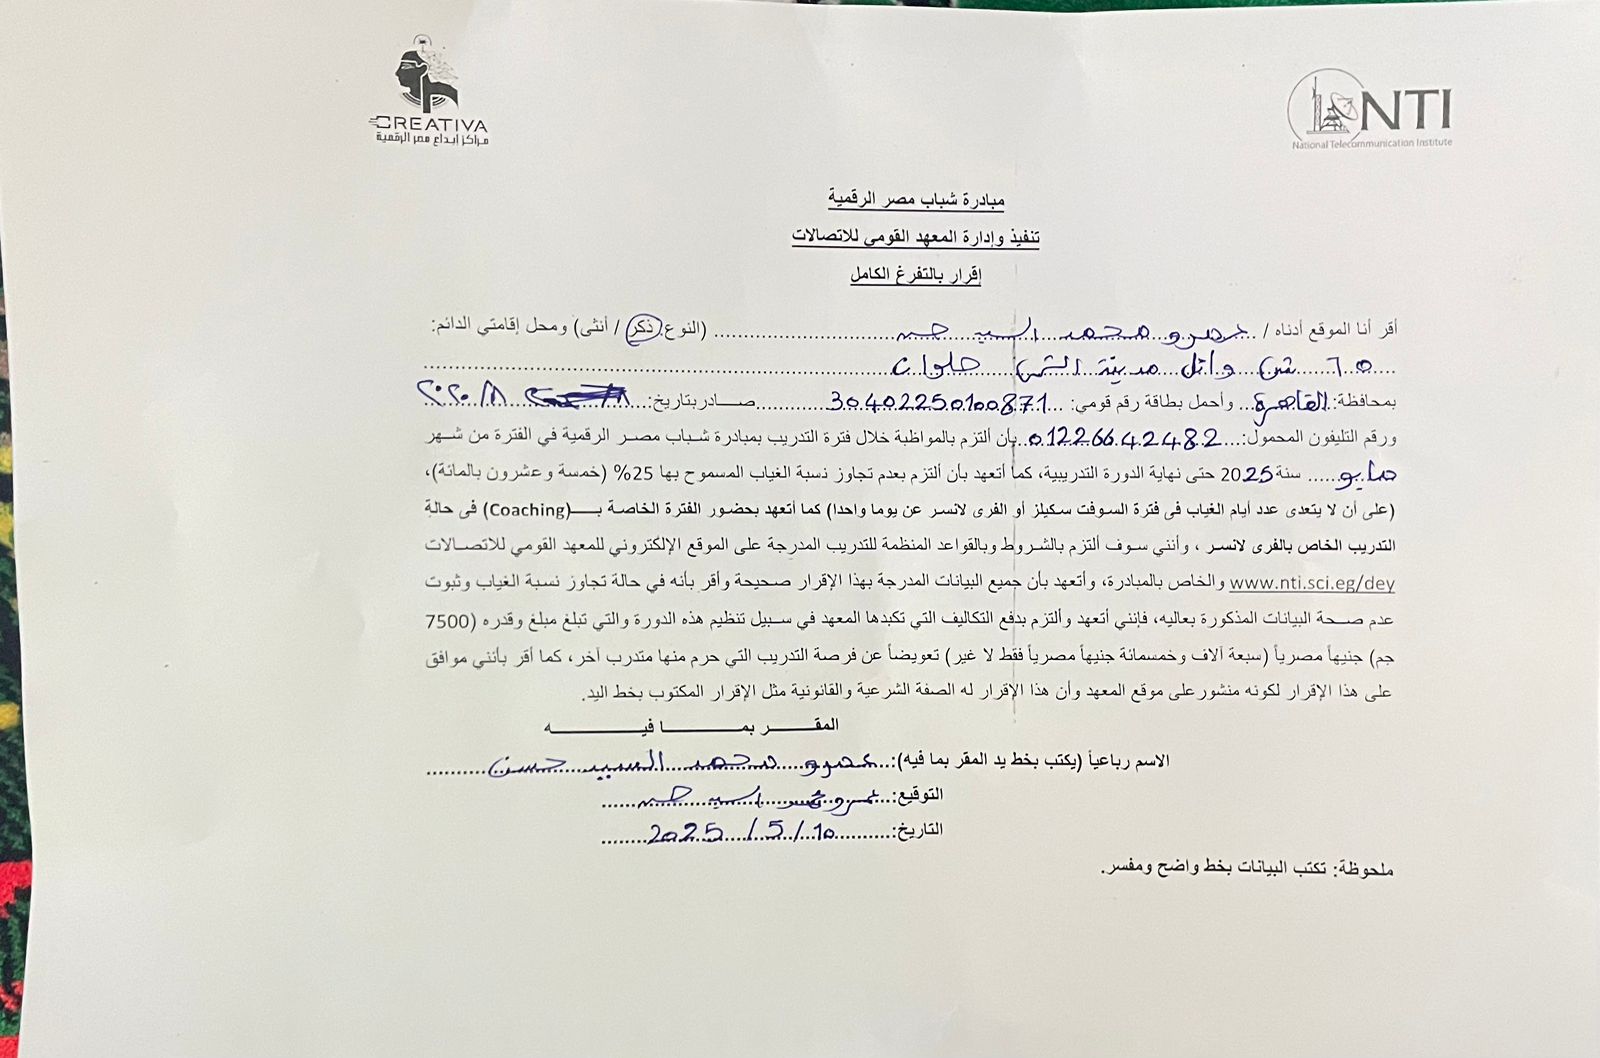 CREATIVA
مراكز إبداع مصر الرقمية
NTI
National Telecommunication Institute
مبادرة شباب مصر الرقمية
تنفيذ وإدارة المعهد القومي للاتصالات
إقرار بالتفرغ الكامل
أقر أنا الموقع أدناه / عمرو محمد السيد حسن (النوع: ذكر / أنثى) ومحل إقامتي الدائم:
٦٥ ش وائل مدينة حلوان
بمحافظة: القاهرة وأحمل بطاقة رقم قومي: 30402250100871 صادر بتاريخ:
ورقم التليفون المحمول: 01226642482 بأن ألتزم بالمواظبة خلال فترة التدريب بمبادرة شباب مصر الرقمية في الفترة من شهر
مايو سنة 2025 حتى نهاية الدورة التدريبية، كما أتعهد بأن ألتزم بعدم تجاوز نسبة الغياب المسموح بها 25% (خمسة وعشرون بالمائة)،
(على أن لا يتعدى عدد أيام الغياب فى فترة السوفت سكيلز أو الفرى لانسر عن يوما واحدا) كما أتعهد بحضور الفترة الخاصة بـ(Coaching) فى حالة
التدريب الخاص بالفرى لانسر ، وأنني سوف ألتزم بالشروط وبالقواعد المنظمة للتدريب المدرجة على الموقع الإلكتروني للمعهد القومي للاتصالات
www.nti.sci.eg/dey والخاص بالمبادرة، وأتعهد بأن جميع البيانات المدرجة بهذا الإقرار صحيحة وأقر بأنه في حالة تجاوز نسبة الغياب وثبوت
عدم صحة البيانات المذكورة بعاليه، فإنني أتعهد وألتزم بدفع التكاليف التي تكبدها المعهد في سبيل تنظيم هذه الدورة والتي تبلغ مبلغ وقدره (7500
جم) جنيهاً مصرياً (سبعة آلاف وخمسمائة جنيهاً مصرياً فقط لا غير) تعويضاً عن فرصة التدريب التي حرم منها متدرب آخر، كما أقر بأنني موافق
على هذا الإقرار لكونه منشور على موقع المعهد وأن هذا الإقرار له الصفة الشرعية والقانونية مثل الإقرار المكتوب بخط اليد.
المقر بما فيه
الاسم رباعياً (يكتب بخط يد المقر بما فيه): عمرو محمد السيد حسن
التوقيع: عمرو محمد السيد حسن
التاريخ: 10/5/2025
ملحوظة: تكتب البيانات بخط واضح ومفسر.